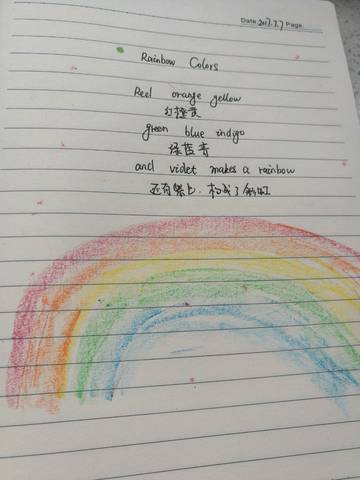 Date 2017.7.7 Page
Rainbow Colors
Red orange yellow
红橙黄
green blue indigo
绿蓝青
and violet makes a rainbow
还有紫色,构成了彩虹